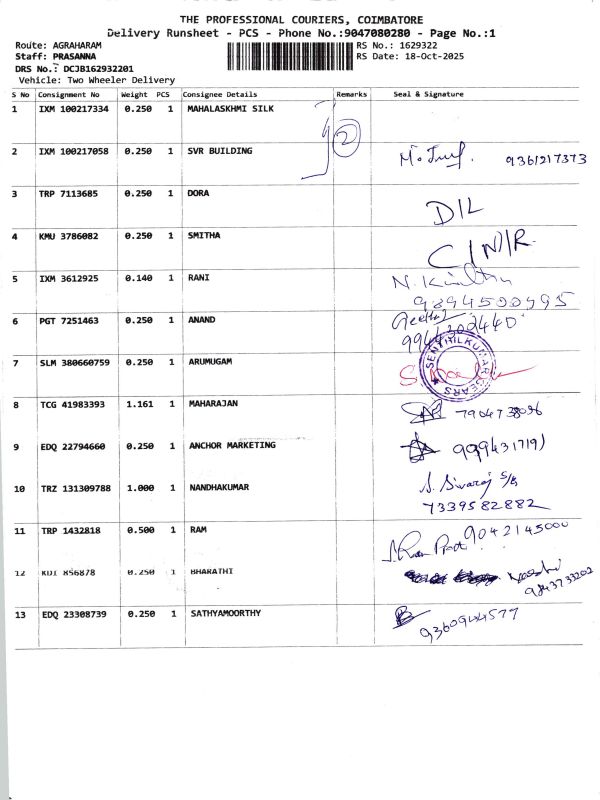 THE PROFESSIONAL COURIERS, COIMBATORE
Delivery Runsheet - PCS - Phone No.:9047080280 - Page No.:1
Route: AGRAHARAM RS No.: 1629322
Staff: PRASANNA RS Date: 18-Oct-2025
DRS No.: DCJB162932201
Vehicle: Two Wheeler Delivery
S No Consignment No Weight PCS Consignee Details Remarks Seal & Signature
1 IXM 100217334 0.250 1 MAHALASKHMI SILK
2
2 IXM 100217058 0.250 1 SVR BUILDING 9361217373
3 TRP 7113685 0.250 1 DORA D/L
4 KMU 3786082 0.250 1 SMITHA C/N/R
5 IXM 3612925 0.140 1 RANI
9894500995
6 PGT 7251463 0.250 1 ANAND Geetha
9944302440
7 SLM 380660759 0.250 1 ARUMUGAM SENTHILKUMAR GEARS
8 TCG 41983393 1.161 1 MAHARAJAN 7904738096
9 EDQ 22794660 0.250 1 ANCHOR MARKETING 9994317191
10 TRZ 131309788 1.000 1 NANDHAKUMAR S. Sivaraj S/B
7339582882
11 TRP 1432818 0.500 1 RAM 9042145000
12 KDI 856878 0.250 1 BHARATHI
9843733202
13 EDQ 23308739 0.250 1 SATHYAMOORTHY
9360944577